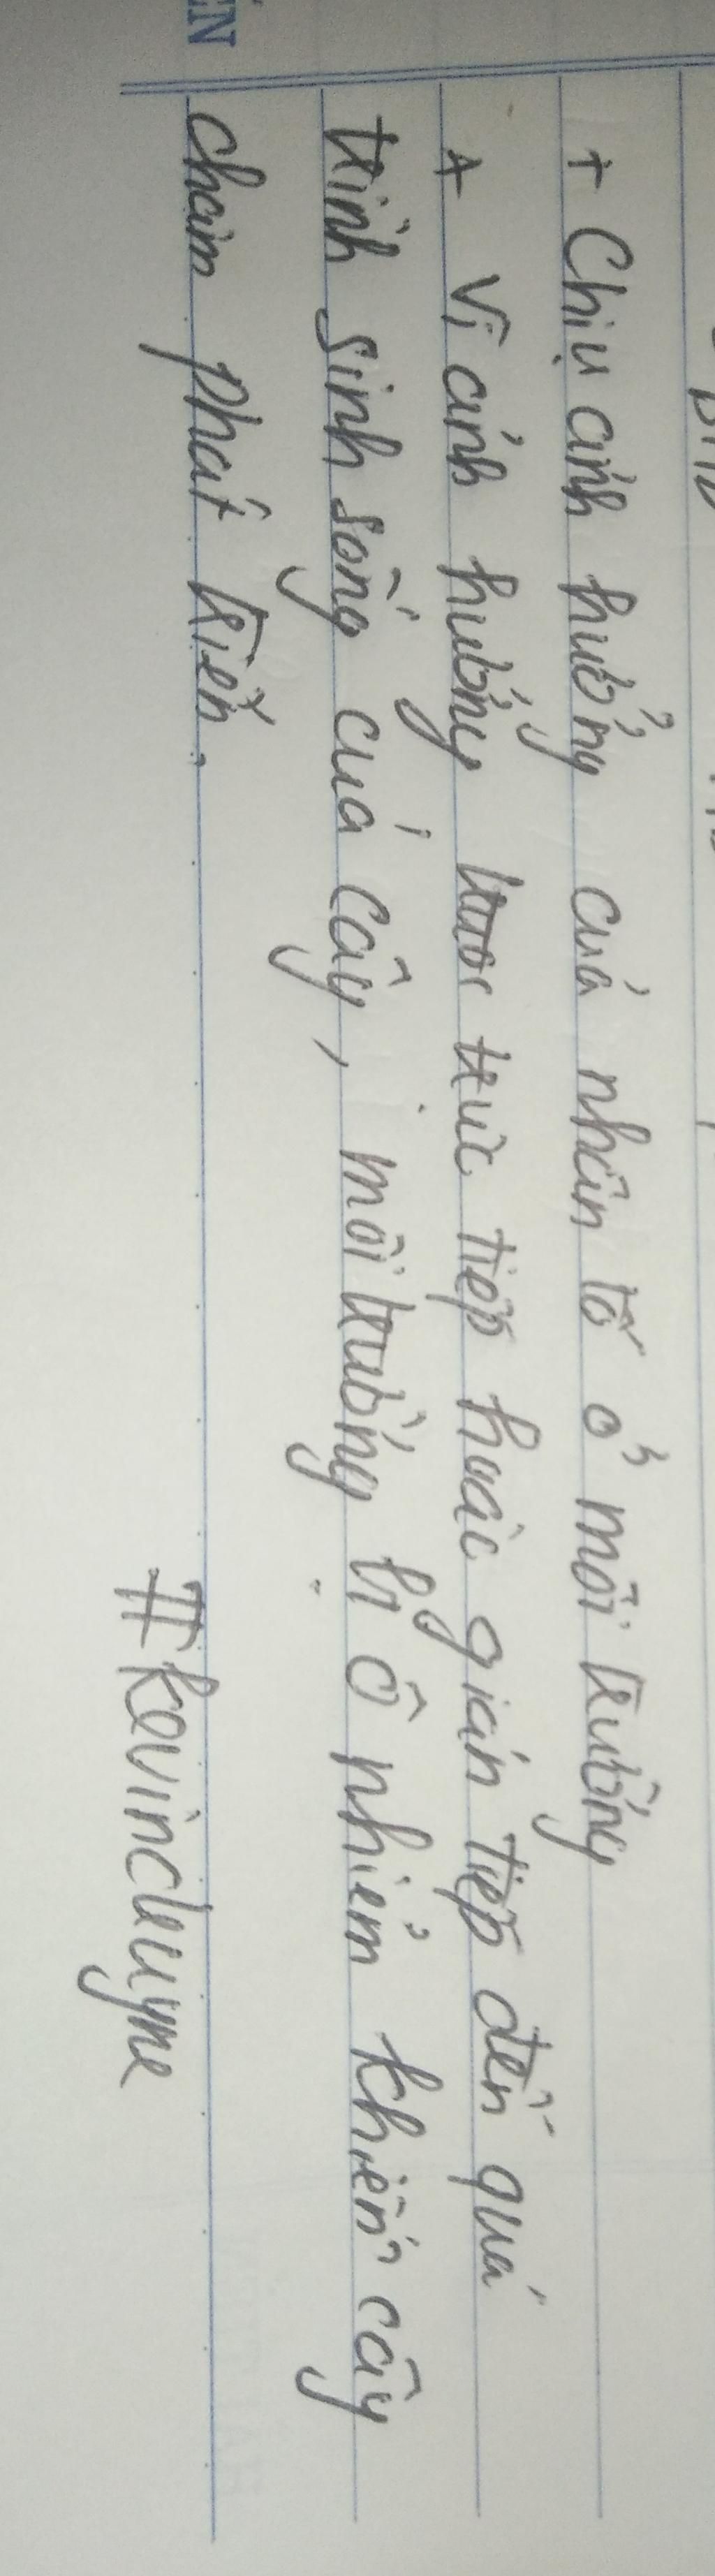 + Chịu ảnh hưởng của nhân tố ở môi trường
+ Vì ảnh hưởng trực tiếp hoặc gián tiếp đến quá
trình sinh sống của cây, môi trường bị ô nhiễm khiến cây
chậm phát triển.
#kevincleuyne
ẾN